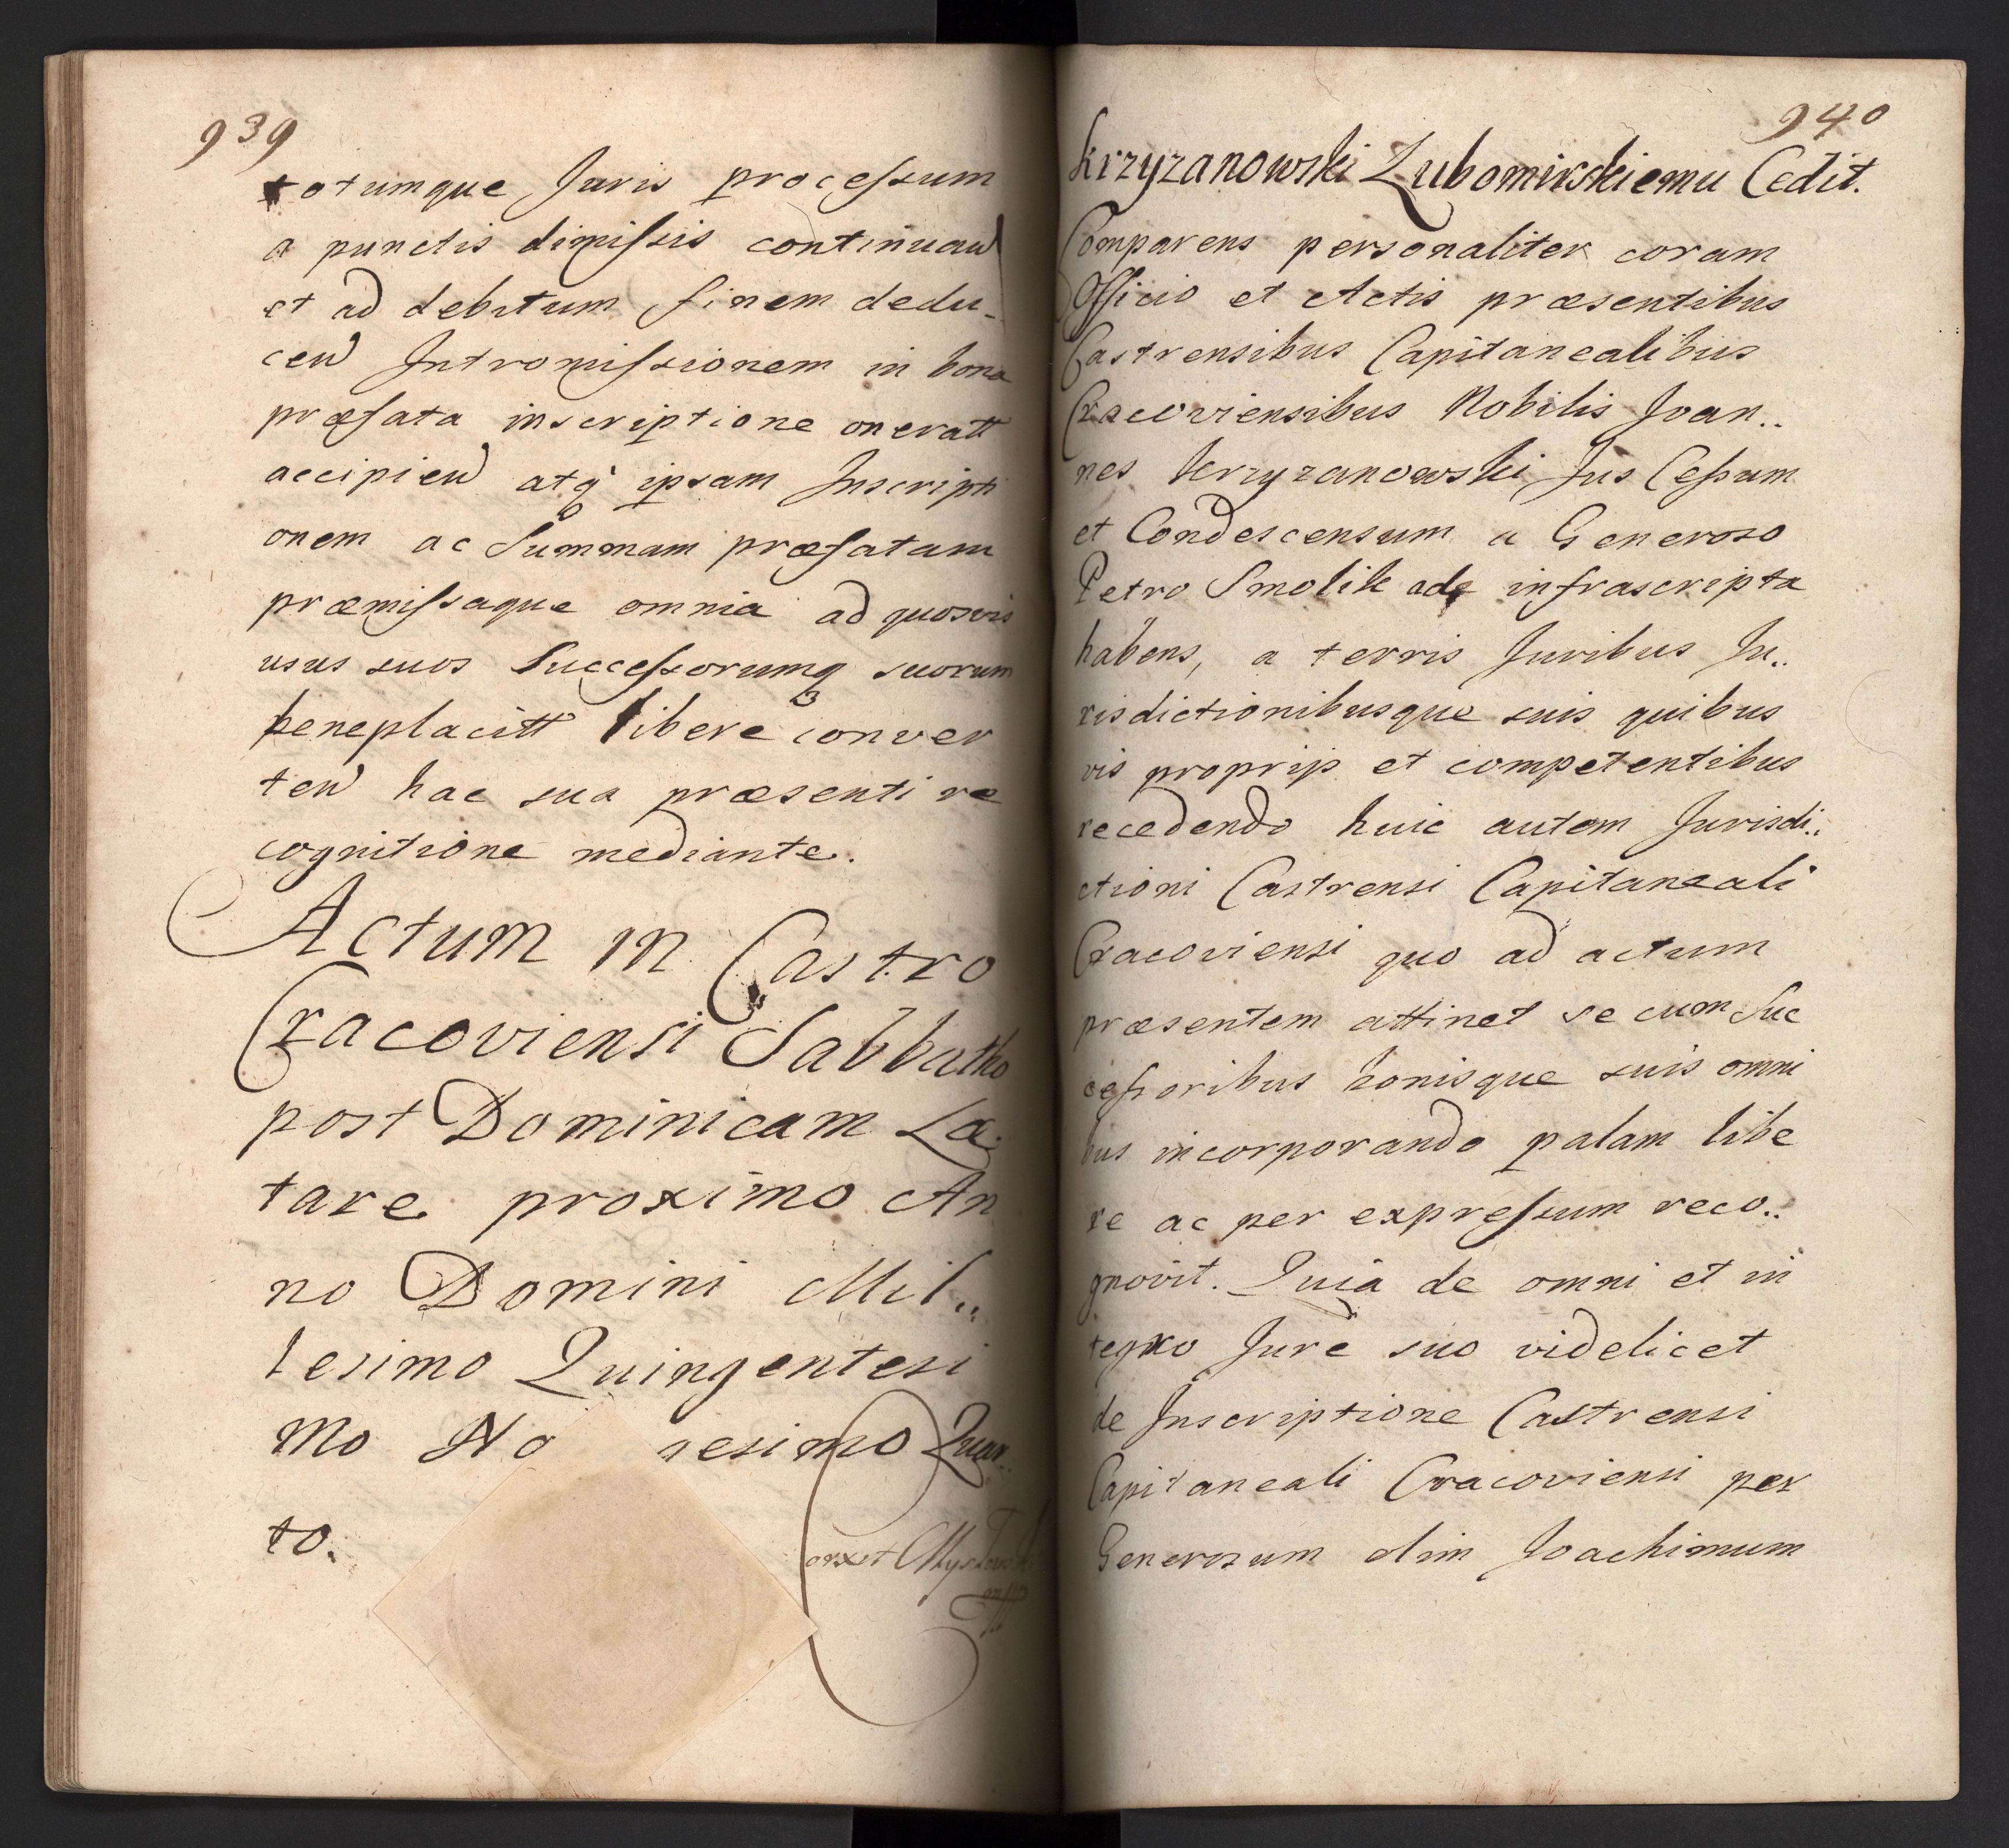 939
totumque Juris processum
a punctis dimissis continuand
et ad debitum finem dedu-
cen Intromissionem in bona
præfata inscriptione oneratt
accipien atq ipsam Inscripti
onem ac Summam præfatam
præmissaque omnia ad quosvis
usus suos Successorumq suorum
beneplacitt libere conver
ten hac sua præsenti re
cognitione mediante.
Actum in Castro
Cracoviensi Sabbatho
post Dominicam Læ
tare proximo An
no Domini Mil..
lesimo Quingentesi
mo No esimo Quar..
to.
940
Krzyzanowski Lubomirskiemu Cedit.
Comparens personaliter coram
Officio et Actis præsentibus
Castrensibus Capitanealibus
Cracoviensibus Nobilis Joan..
nes Krzyzanowski Jus Cessum
et Condescensum a Generoso
Petro Smolik ad infrascripta
habens, a terris Juribus Ju..
risdictionibusque suis quibus
vis proprijs et competentibus
recedendo huic autem Jurisdi..
ctioni Castrensi Capitaneali
Cracoviensi quo ad actum
præsentem attinet se cum Suc
cessoribus bonisque suis omni
bus incorporando palam libe
re ac per expressum reco..
gnovit. Quia de omni et in
tegro Jure suo videlicet
de Inscriptione Castrensi
Capitaneali Cracoviensi per
Generosum olim Joachimum